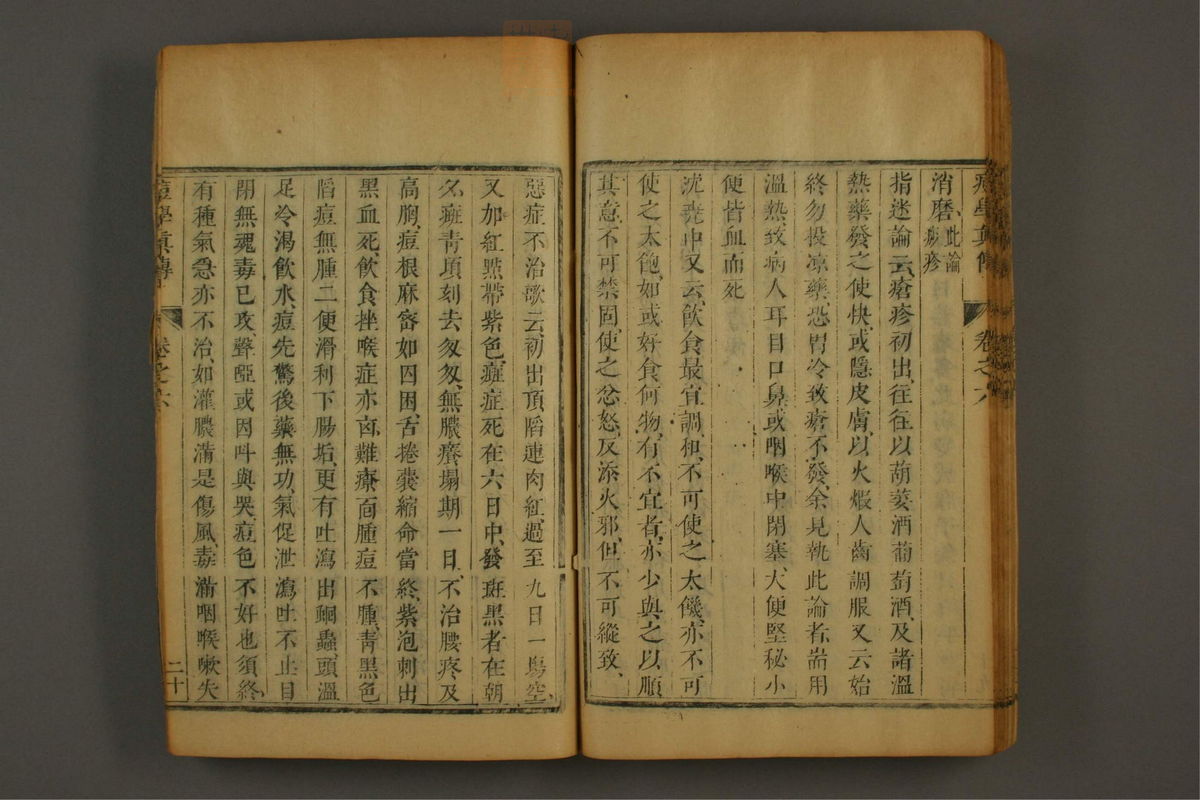 痘學真傳 卷之六
消磨、此論癍疹
指迷論云、瘡疹初出、往往以葫荽酒葡萄酒、及諸溫
熱藥發之使快、或隱皮膚、以火煆人齒調服、又云始
終勿投凉藥、恐胃冷致瘡不發、余見執此論者、耑用
溫熱、致病人耳目口鼻或咽喉中閉塞、大便堅秘、小
便皆血而死
沈堯中又云、飲食最宜調和、不可使之太饑、亦不可
使之太飽、如或好食何物、有不宜者、亦少與之以順
其意、不可禁固、使之忿怒、反添火邪、但不可縱致、
惡症不治歌云、初出頂陷連肉紅、過至九日一塲空、
又加紅㸃帶紫色、癍症死在六日中、發斑黑者在朝
夕、癍靑頃刻去匆匆、無膿癢塌期一日、不治腰疼及
高胸、痘根麻宻如因困、舌捲囊縮命當終、紫泡刺出
黑血死、飲食挫喉症亦凶、難療面腫痘不腫、靑黑色
陷痘無腫、二便滑利下腸垢、更有吐瀉出蛔蟲、頭溫
足冷渴飲水、痘先驚後藥無功、氣促泄瀉吐不止、目
閉無魂毒已攻、聲啞或因呌與哭、痘色不好也須終、
有種氣急亦不治、如灌膿漿是傷風、毒滿咽喉嗽失
痘學眞傳 卷之六 二十